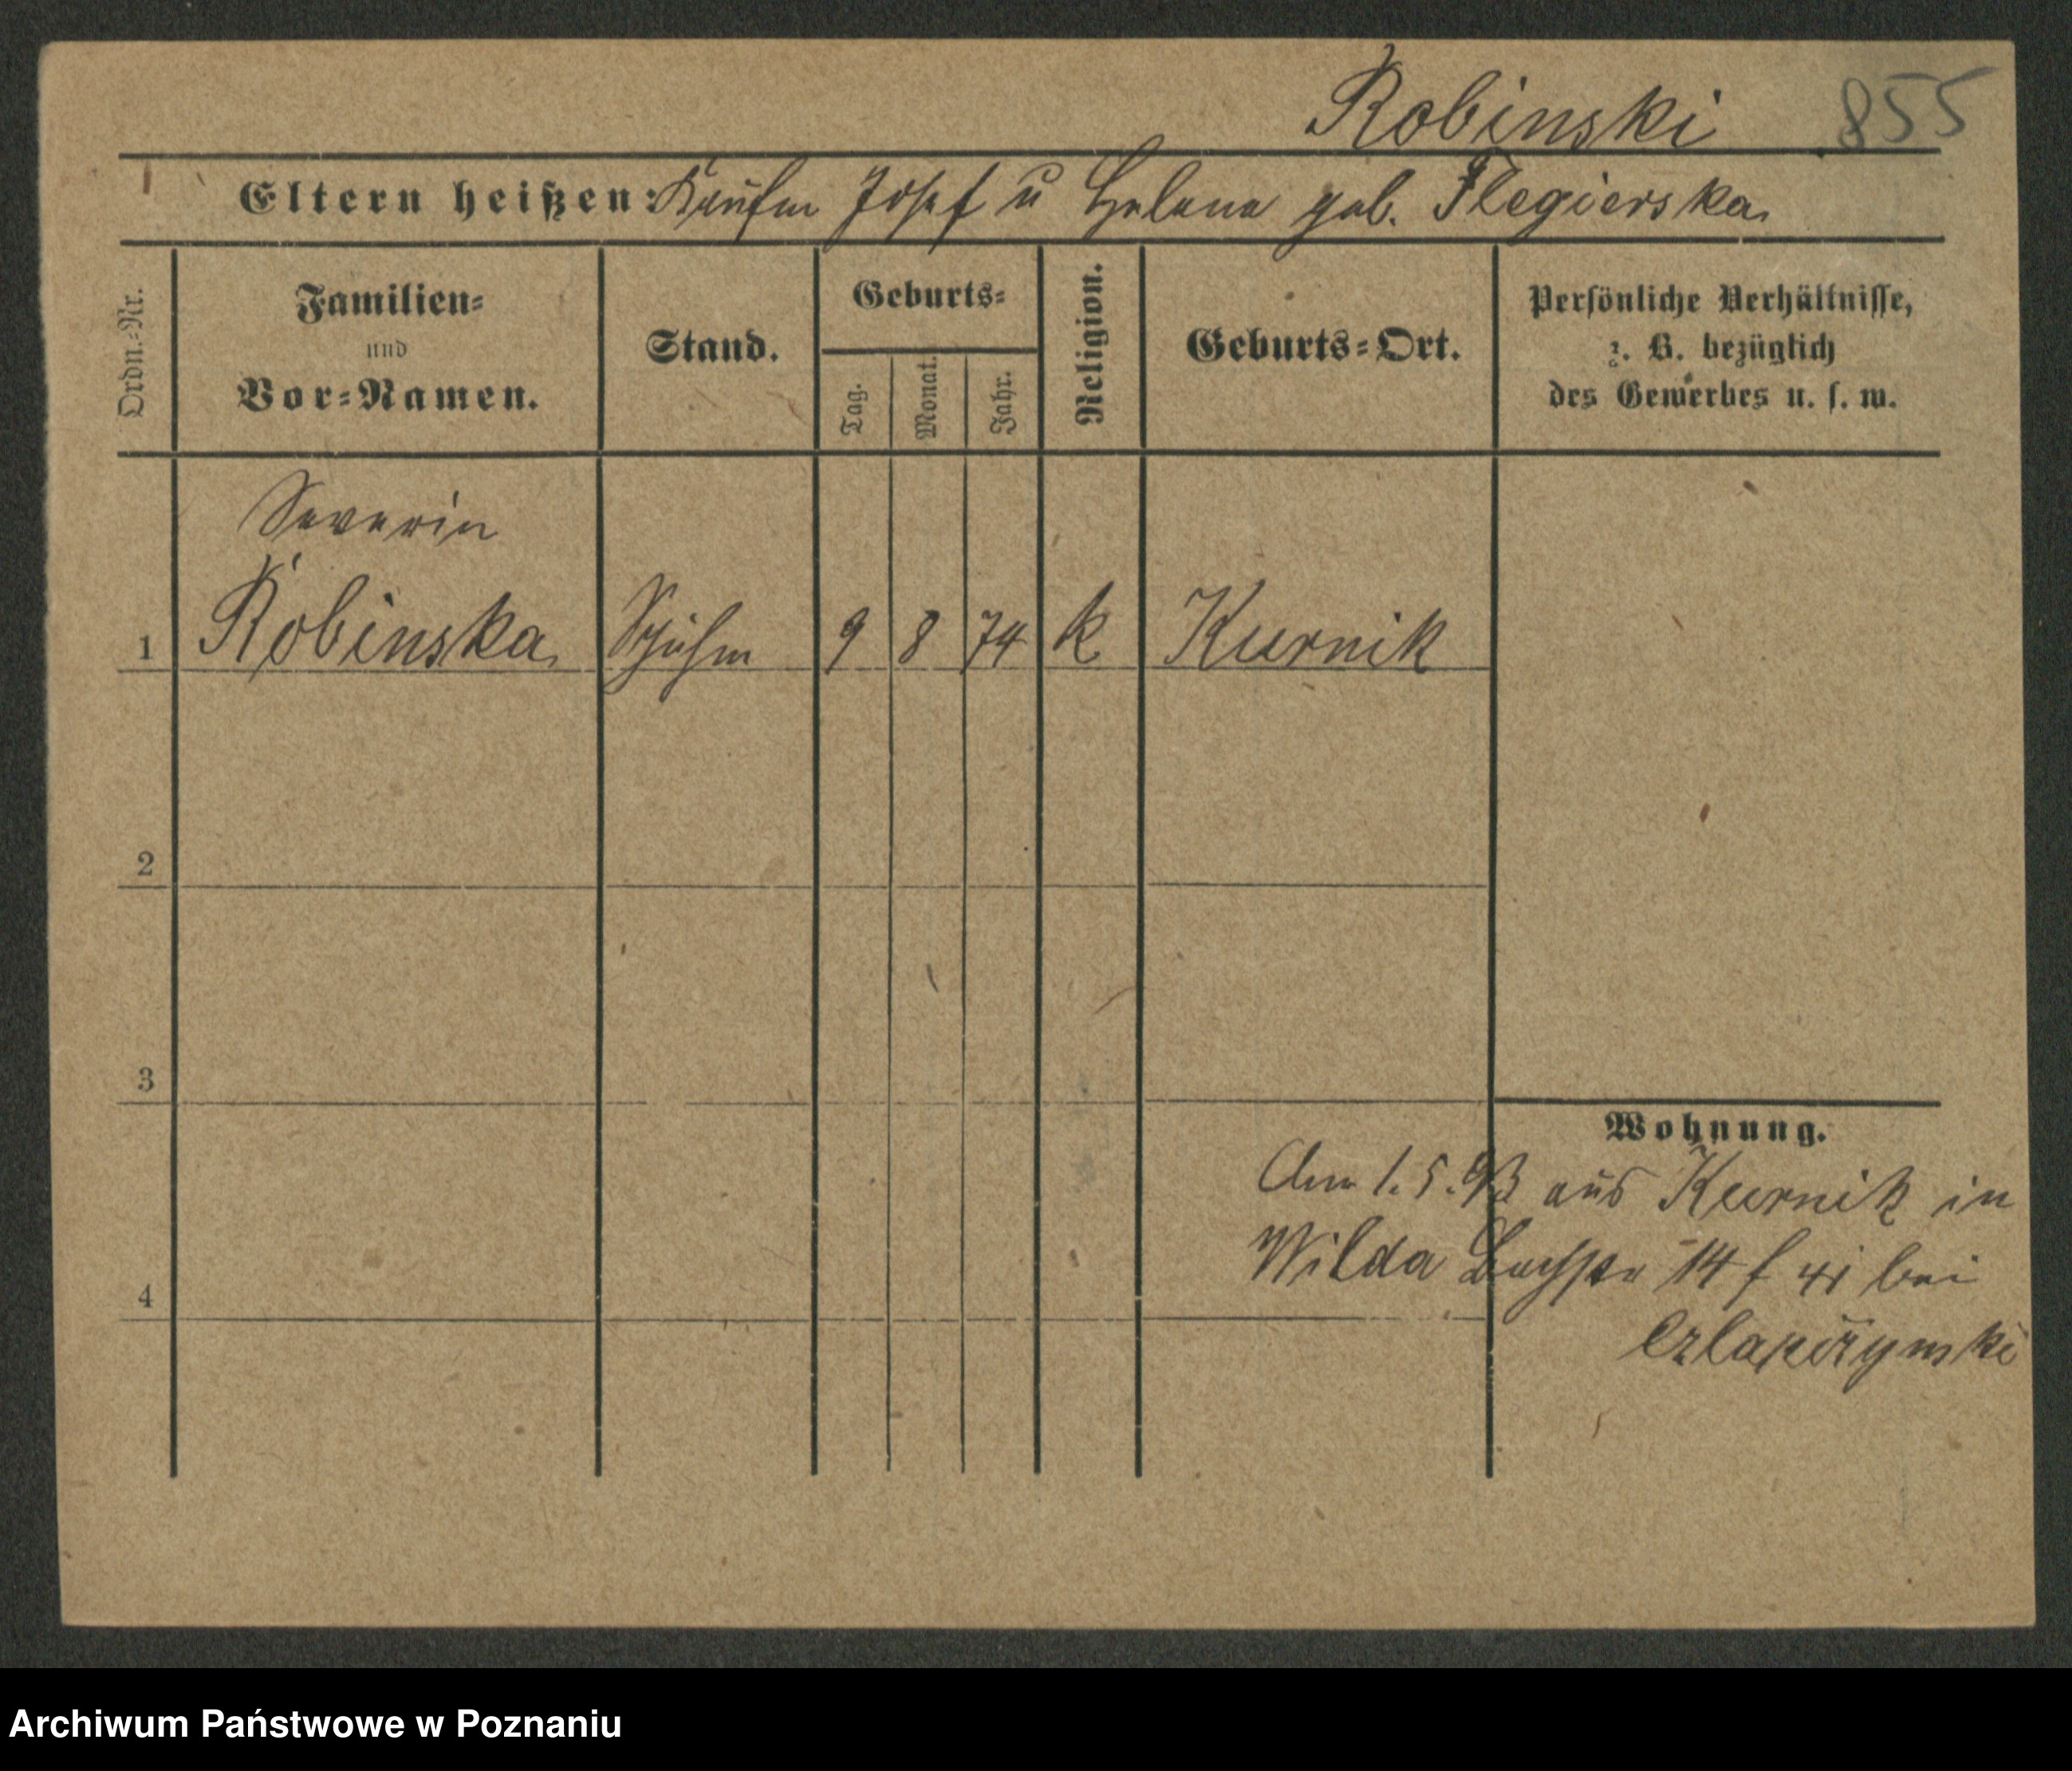 Robinski 855
Eltern heißen: Kaufm Josef u Helena geb. Flegierska
Ordn.-Nr.
Familien-
und
Vor-Namen.
Stand.
Geburts-
Tag.
Monat.
Jahr.
Religion.
Geburts-Ort.
Persönliche Verhältnisse,
z. B. bezüglich
des Gewerbes u. s. w.
Severin
1 Robinska Schuhm 9 8 74 k Kurnik
2
3
4
Wohnung.
Am 1. 5. 93 aus Kurnik in
Wilda Bachstr 14 bei
Archiwum Państwowe w Poznaniu